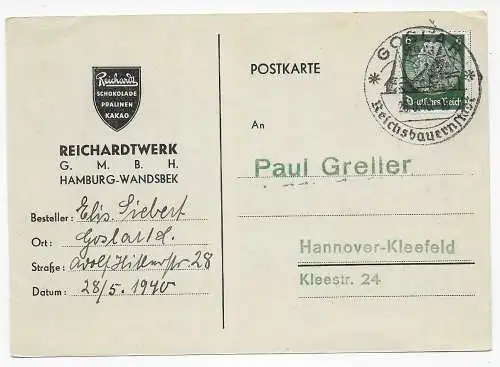 Reichardt
SCHOKOLADE
PRALINEN
KAKAO
REICHARDTWERK
G. M. B. H.
HAMBURG-WANDSBEK
Besteller: Elis. Siebert
Ort: Goslar
Straße: Adolf Hitlerstr 28
Datum: 28/5. 1940
POSTKARTE
GOSLAR
6
Deutsches Reich
Reichsbauernstadt
An
Paul Greller
Hannover-Kleefeld
Kleestr. 24